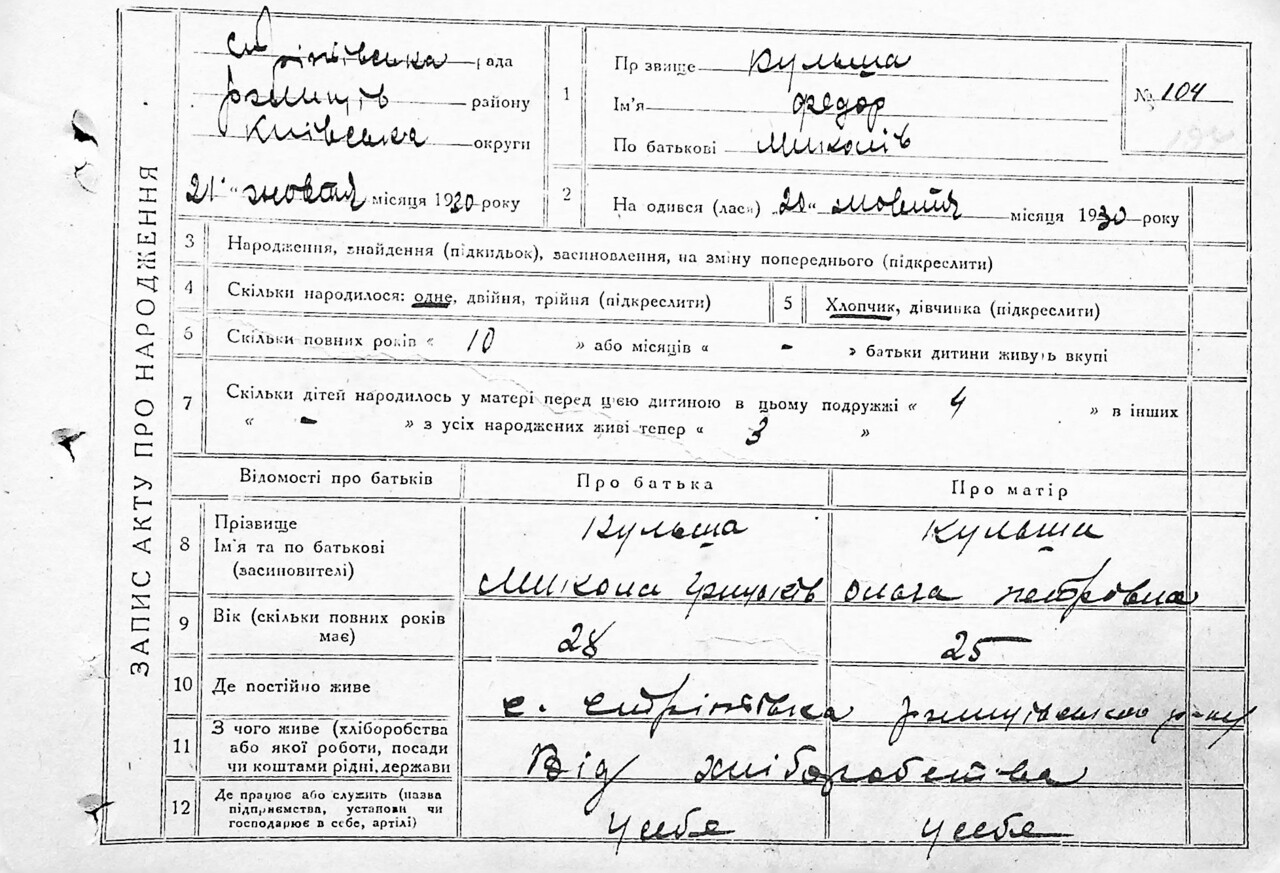 ЗАПИС АКТУ ПРО НАРОДЖЕННЯ
рада
Ржищів району
Київська округи
21 " жовтня місяця 1930 року
1
Пр звище Кульша
Ім'я Федор
По батькові Миколів
№ 104
2
На одився (лася) „20" жовтня місяця 1930 року
3 Народження, знайдення (підкидьок), засиновлення, на зміну попереднього (підкреслити)
4 Скільки народилося: одне, двійня, трійня (підкреслити)
5 Хлопчик, дівчинка (підкреслити)
6 Скільки повних років « 10 » або місяців « - » батьки дитини живуть вкупі
7 Скільки дітей народилось у матері перед цією дитиною в цьому подружжі « 4 » в інших
« - » з усіх народжених живі тепер « 3 »
Відомості про батьків Про батька Про матір
8 Прізвище Кульша Кульша
Ім'я та по батькові
(засиновителі) Микола Грицьків Ольга Петрівна
9 Вік (скільки повних років
має) 28 25
10 Де постійно живе с. Стрітівка Ржищівського р-ну
11 З чого живе (хліборобства
або якої роботи, посади
чи коштами рідні, держави Від хліборобства
12 Де працює або служить (назва
підприємства, установи чи
господарює в себе, артілі) У себе У себе